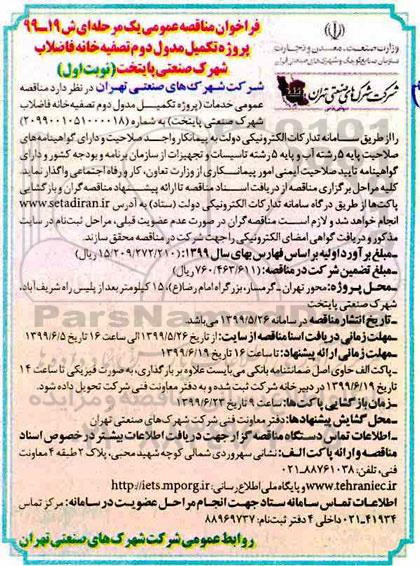 فراخوان مناقصه عمومی یک مرحله‌ای ش ۱۹-۹۹
پروژه تکمیل مدول دوم تصفیه خانه فاضلاب
شهرک صنعتی پایتخت (نوبت اول)
وزارت صنعت، معدن و تجارت
سازمان صنایع کوچک و شهرکهای صنعتی ایران
شرکت شهرکهای صنعتی تهران
شرکت شهرک های صنعتی تهران در نظر دارد مناقصه
عمومی خدمات (پروژه تکمیل مدول دوم تصفیه خانه فاضلاب
شهرک صنعتی پایتخت) به شماره (۲۰۹۹۰۰۱۰۵۱۰۰۰۰۱۸)
را از طریق سامانه تدارکات الکترونیکی دولت به پیمانکار واجد صلاحیت و دارای گواهینامه های
صلاحیت پایه ۵ رشته آب و پایه ۵ رشته تاسیسات و تجهیزات از سازمان برنامه و بودجه کشور و دارای
گواهینامه تایید صلاحیت ایمنی امور پیمانکاری از وزارت تعاون، کار و رفاه اجتماعی واگذار نماید.
کلیه مراحل برگزاری مناقصه از دریافت اسناد مناقصه تا ارائه پیشنهاد مناقصه گران و بازگشایی
پاکت‌ها از طریق درگاه سامانه تدارکات الکترونیکی دولت (ستاد) به آدرس www.setadiran.ir
انجام خواهد شد و لازم است مناقصه گران در صورت عدم عضویت قبلی، مراحل ثبت نام در سایت
مذکور و دریافت گواهی امضای الکترونیکی را جهت شرکت در مناقصه محقق سازند.
ـ مبلغ برآورد اولیه بر اساس فهارس بهای سال ۱۳۹۹: (۱۵/۲۰۹/۲۷۲/۲۱۰ ریال)
ـ مبلغ تضمین شرکت در مناقصه: (۷۶۰/۴۶۳/۶۱۱ ریال)
ـ محل پروژه: محور تهران ـ گرمسار، بزرگراه امام رضا(ع)، ۱۵ کیلومتر بعد از پلیس راه شریف‌آباد،
شهرک صنعتی پایتخت
ـ تاریخ انتشار مناقصه در سامانه ۱۳۹۹/۵/۲۶ می‌باشد.
ـ مهلت زمانی دریافت اسناد مناقصه از سایت: از تاریخ ۱۳۹۹/۵/۲۶ الی ساعت ۱۶ تاریخ ۱۳۹۹/۶/۵
ـ مهلت زمانی ارائه پیشنهاد: تا ساعت ۱۶ تاریخ ۱۳۹۹/۶/۱۹
ـ پاکت الف حاوی اصل ضمانتنامه بانکی می‌بایست علاوه بر بارگذاری، به صورت فیزیکی تا ساعت ۱۴
تاریخ ۱۳۹۹/۶/۱۹ در دبیرخانه شرکت ثبت شده و به دفتر معاونت فنی شرکت تحویل داده شود.
ـ زمان بازگشایی پاکت‌ها: ساعت ۹ تاریخ ۱۳۹۹/۶/۲۳
ـ محل گشایش پیشنهادها: دفتر معاونت فنی شرکت شهرک های صنعتی تهران
ـ اطلاعات تماس دستگاه مناقصه گزار جهت دریافت اطلاعات بیشتر در خصوص اسناد
مناقصه و ارائه پاکت الف: نشانی سهروردی شمالی کوچه شهید محبی، پلاک ۲ طبقه ۴ معاونت
فنی، تلفن: ۸۸۷۶۱۰۳۸-۰۲۱
www.tehraniec.ir و پایگاه ملی اطلاع رسانی: http://iets.mporg.ir
اطلاعات تماس سامانه ستاد جهت انجام مراحل عضویت در سامانه: مرکز تماس
۴۱۹۳۴-۰۲۱ داخلی ۴ دفتر ثبت نام: ۸۸۹۶۹۷۳۷
روابط عمومی شرکت شهرک های صنعتی تهران